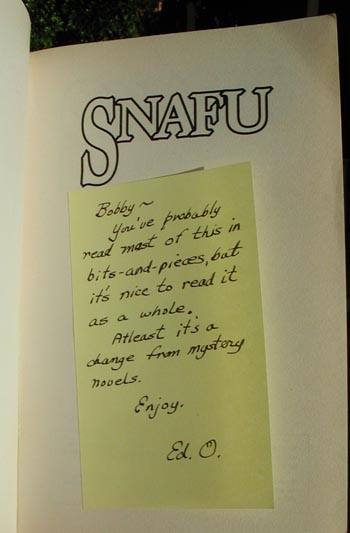 SNAFU
Bobby ~
You've probably
read most of this in
bits-and-pieces, but
it's nice to read it
as a whole.
Atleast it's a
change from mystery
novels.
Enjoy.
Ed. O.